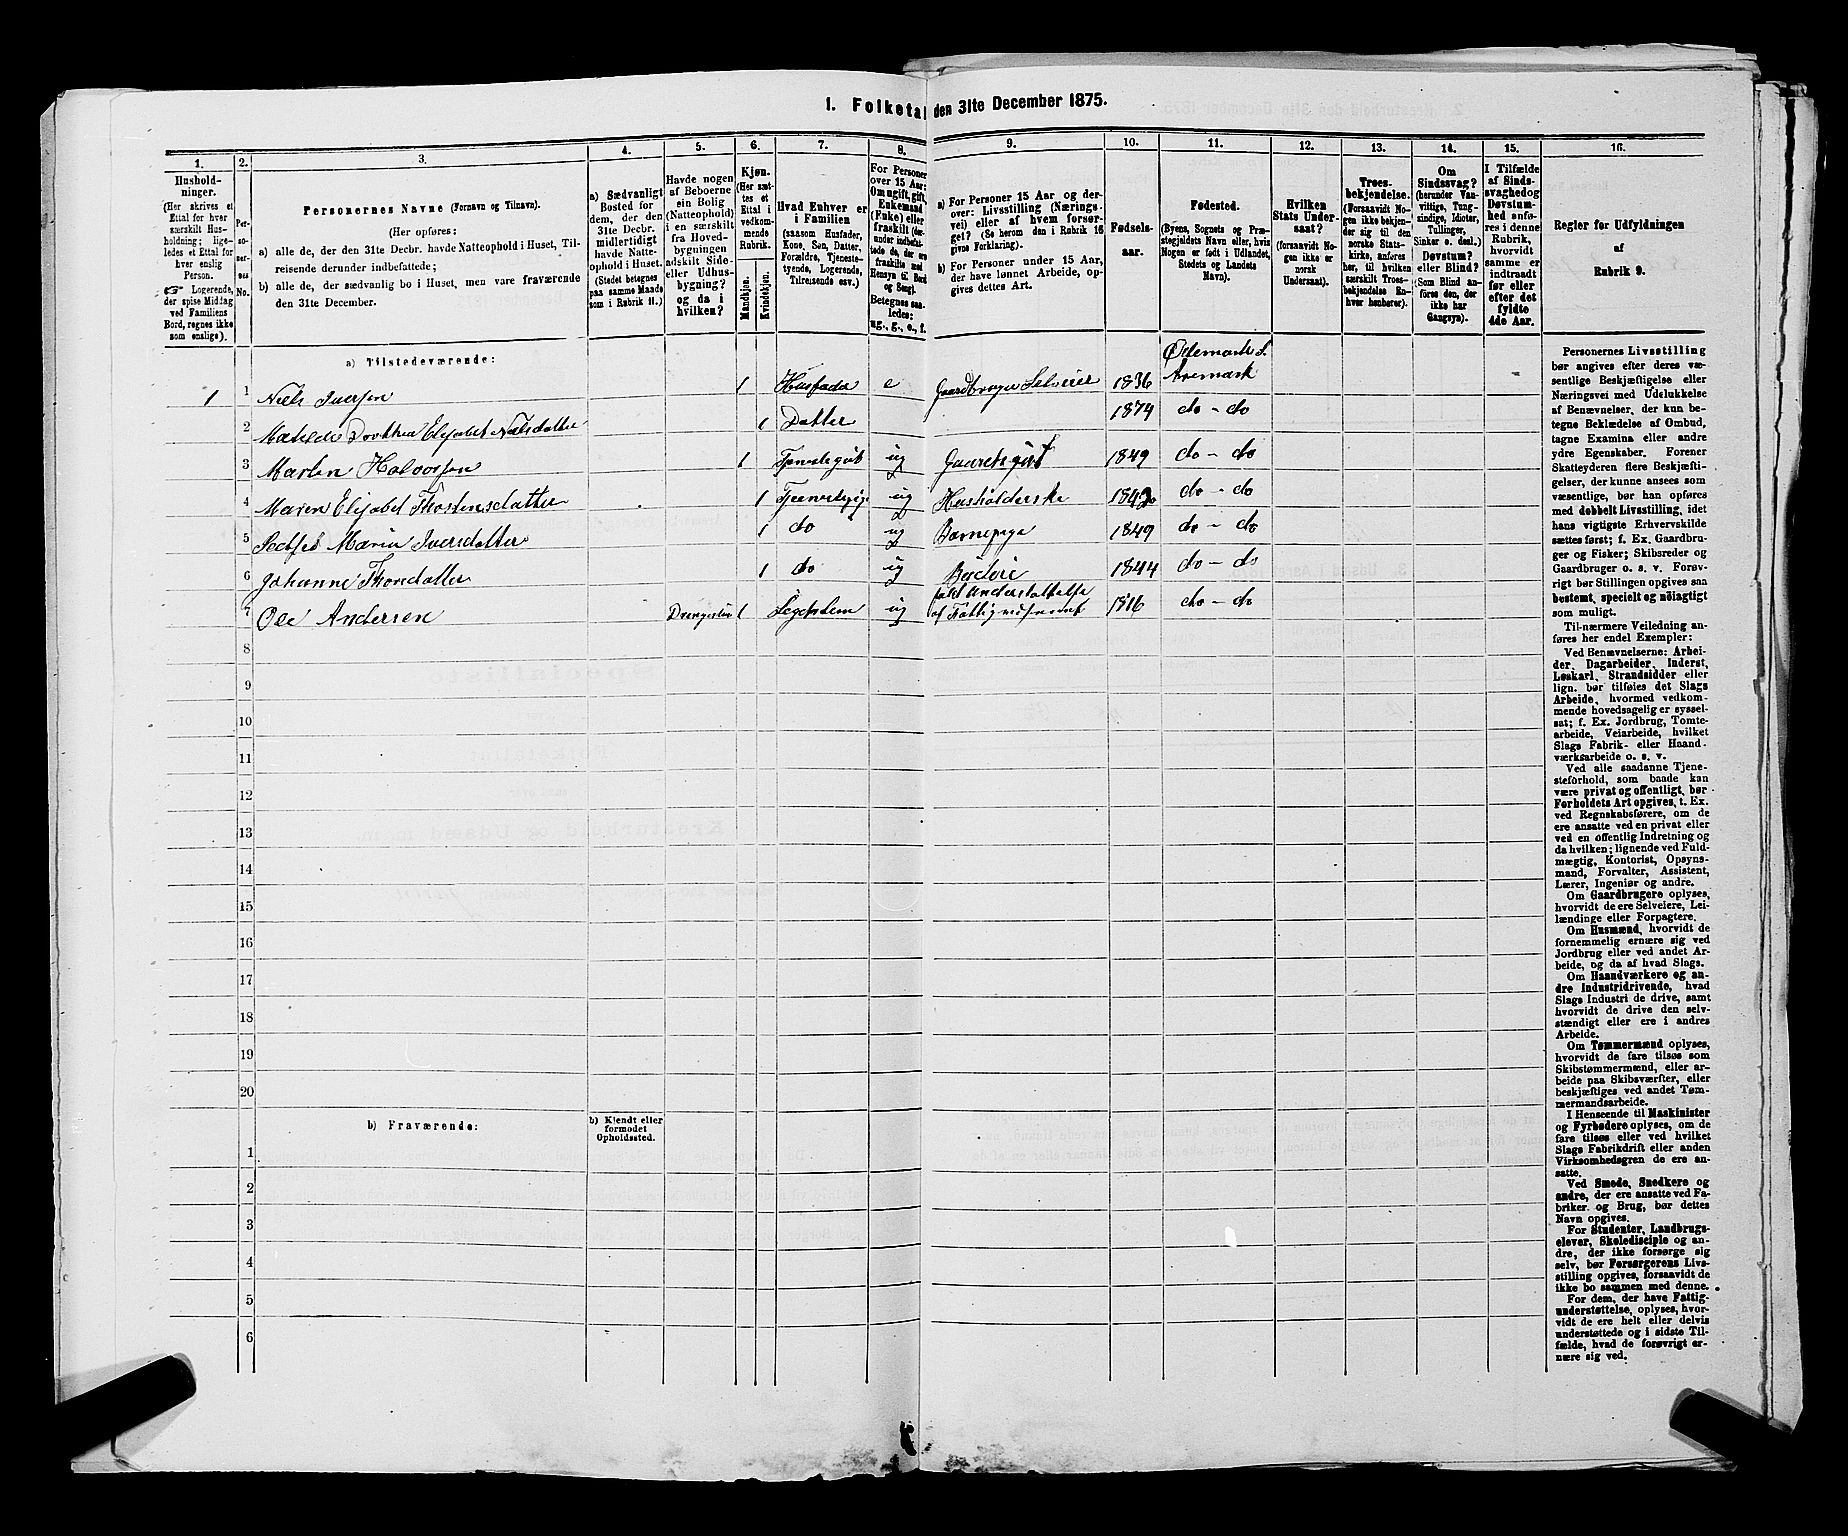 1. Folketal den 31te December 1875.
1.
Hushold-
ninger.
(Her skrives et
Ettal for hver
særskilt Hus-
holdning; lige-
ledes et Ettal for
hver enslig
Person.
☞ Logerende,
der spise Middag
ved Familiens
Bord, regnes ikke
som enslige).
2.
Per-
so-
ner-
nes
No.
3.
Personernes Navne (Fornavn og Tilnavn).
(Her opføres:
a) alle de, der den 31te Decbr. havde Natteophold i Huset, Til-
reisende derunder indbefattede;
b) alle de, der sædvanlig bo i Huset, men vare fraværende
den 31te December.
4.
a) Sædvanligt
Bosted for
dem, der den
31te Decbr.
midlertidigt
havde Natte-
ophold i Huset.
(Stedet betegnes
paa samme Maade
som i Rubrik 11.)
5.
Havde nogen
af Beboerne
ein Bolig
(Natteophold)
i en særskilt
fra Hoved-
bygningen
adskilt Side-
eller Udhus-
bygning?
og da i
hvilken?
6.
Kjøn.
(Her sæt-
tes et
Ettal i
vedkom-
mende
Rubrik.
Mandkjøn.
Kvindekjøn.
7.
Hvad Enhver er
i Familien
(saasom Husfader,
Kone, Søn, Datter,
Forældre, Tjeneste-
tyende, Logerende,
Tilreisende osv.)
8.
For Personer
over 15 Aar:
Om ugift, gift,
Enkemand
(Enke) eller
fraskilt (der-
under indbefat-
tede de, der ere
fraskilte med
Hensyn til Bord
og Seng).
Betegnes saa-
ledes:
ug., g., e., f.
9.
a) For Personer 15 Aar og der-
over: Livsstilling (Nærings-
vei) eller af hvem forsør-
get? (Se herom den i Rubrik 16
givne Forklaring).
b) For Personer under 15 Aar,
der have lønnet Arbeide, op-
gives dettes Art.
10.
Fødsels-
aar.
11.
Fødested.
(Byens, Sognets og Præ-
stegjeldets Navn eller, hvis
Nogen er født i Udlandet,
Stedets og Landets
Navn).
12.
Hvilken
Stats Under-
saat?
(forsaavidt No-
gen ikke er
norsk
Undersaat).
13.
Troes-
bekjendelse.
(Forsaavidt No-
gen ikke bekjen-
der sig til den
norske Stats-
kirke, anføres
her, til hvilken
særskilt Troes-
bekjendelse En-
hver henhører).
14.
Om
Sindssvag?
(herunder Van-
vittige, Tung-
sindige, Idioter,
Tullinger,
Sinker o. desl.)
Døvstum?
eller Blind?
(Som Blind an-
føres den, der
ikke har
Gangsyn).
15.
I Tilfælde
af Sinds-
svaghed og
Døvstum-
hed anfø-
res i denne
Rubrik,
hvorvidt
samme er
indtraadt
før eller
efter det
fyldte
4de Aar.
16.
Regler for Udfyldningen
af
Rubrik 9.
a) Tilstedeværende:
Ødemark S.
1 1 Niels Iversen 1 Husfader e Gaardbruger Selveier 1836 Aremark
2 Matilde Dorthea Elisabet Nielsdatter 1 Datter 1874 do - do
3 Marten Halvorsen 1 Tjenestegut ug Gaardsgut 1849 do - do
4 Maren Elisabet Thostensdatter 1 Tjenestepige ug Husholderske 1842 do - do
5 Maria Iversdatter 1 do ug Barnepige 1849 do - do
6 Johanne Thordatter 1 do ug Budeie 1844 do - do
7 Ole Andersen 1 Lægdslem ug Understøttelse af Fattigvæsenet 1816 do - do
8
9
10
11
12
13
14
15
16
17
18
19
20
b) Fraværende:
b) Kjendt eller
formodet
Opholdssted.
1
2
3
4
5
6
Personernes Livsstilling
bør angives efter deres væ-
sentlige Beskjæftigelse eller
Næringsvei med Udelukkelse
af Benævnelser, der kun be-
tegne Beklædelse af Ombud,
tagne Examina eller andre
ydre Egenskaber. Forener
Skatteyderen flere Beskjæfti-
gelser, der kunne ansees som
væsentlige, bør han opføres
med dobbelt Livsstilling, idet
hans vigtigste Erhvervskilde
sættes først; f. Ex. Gaardbru-
ger og Fisker; Skibsreder og
Gaardbruger o. s. v. Forøv-
rigt bør Stillingen opgives saa
bestemt, specielt og nöiagtigt
som muligt.
Til nærmere Veiledning an-
føres her endel Exempler:
Ved Benævnelserne: Arbei-
der, Dagarbeider, Inderst,
Løskarl, Strandsidder eller
lign. bør tilføies det Slags
Arbeide, hvormed vedkom-
mende hovedsagelig er syssel-
sat; f. Ex. Jordbrug, Tomte-
arbeide, Veiarbeide, hvilket
Slags Fabrik- eller Haand-
værksarbeide o. s. v.
Ved alle saadanne Tjene-
steforhold, som baade kan
være privat og offentligt, bør
Forholdets Art opgives, t. Ex.
ved Regnskabsførere, om de
ere ansatte ved en privat eller
ved en offentlig Indretning og
da hvilken; lignende ved Fuld-
mægtig, Kontorist, Opsyns-
mand, Forvalter, Assistent,
Lærer, Ingeniør og andre.
Om Gaardbrugere oplyses,
hvorvidt de ere Selveiere, Lei-
lændinge eller Forpagtere.
Om Husmænd, hvorvidt de
fornemmelig ernære sig ved
Jordbrug eller ved andet Ar-
beide, og da af hvad Slags.
Om Haandværkere og an-
dre Industridrivende, hvad
Slags Industri de drive, samt
hvorvidt de drive den selv-
stændigt eller ere i andres
Arbeide.
Om Tømmermænd oplyses,
hvorvidt de fare tilsøs som
Skibstømmermænd, eller ar-
beide paa Skibsværfter, eller
beskjæftiges ved andet Tøm-
mermandsarbeide.
I Henseende til Maskinister
og Fyrbødere oplyses, om de
fare tilsøs eller ved hvilket
Slags Fabrikdrift eller anden
Virksomhedsgren de ere an-
satte.
Ved Smede, Snedkere og
andre, der ere ansatte ved Fa-
briker og Brug, bør dettes
Navn opgives.
For Studenter, Landbrugs-
elever, Skoledisciple og an-
dre, der ikke forsørge sig
selv, bør Forsørgerens Livs-
stilling opgives, forsaavidt de
ikke bo sammen med denne.
For dem, der have Fattig-
understøttelse, oplyses, hvor-
vidt de ere helt eller delvis
understøttede og i sidste Til-
fælde, hvad de forøvrigt er-
nære sig ved.